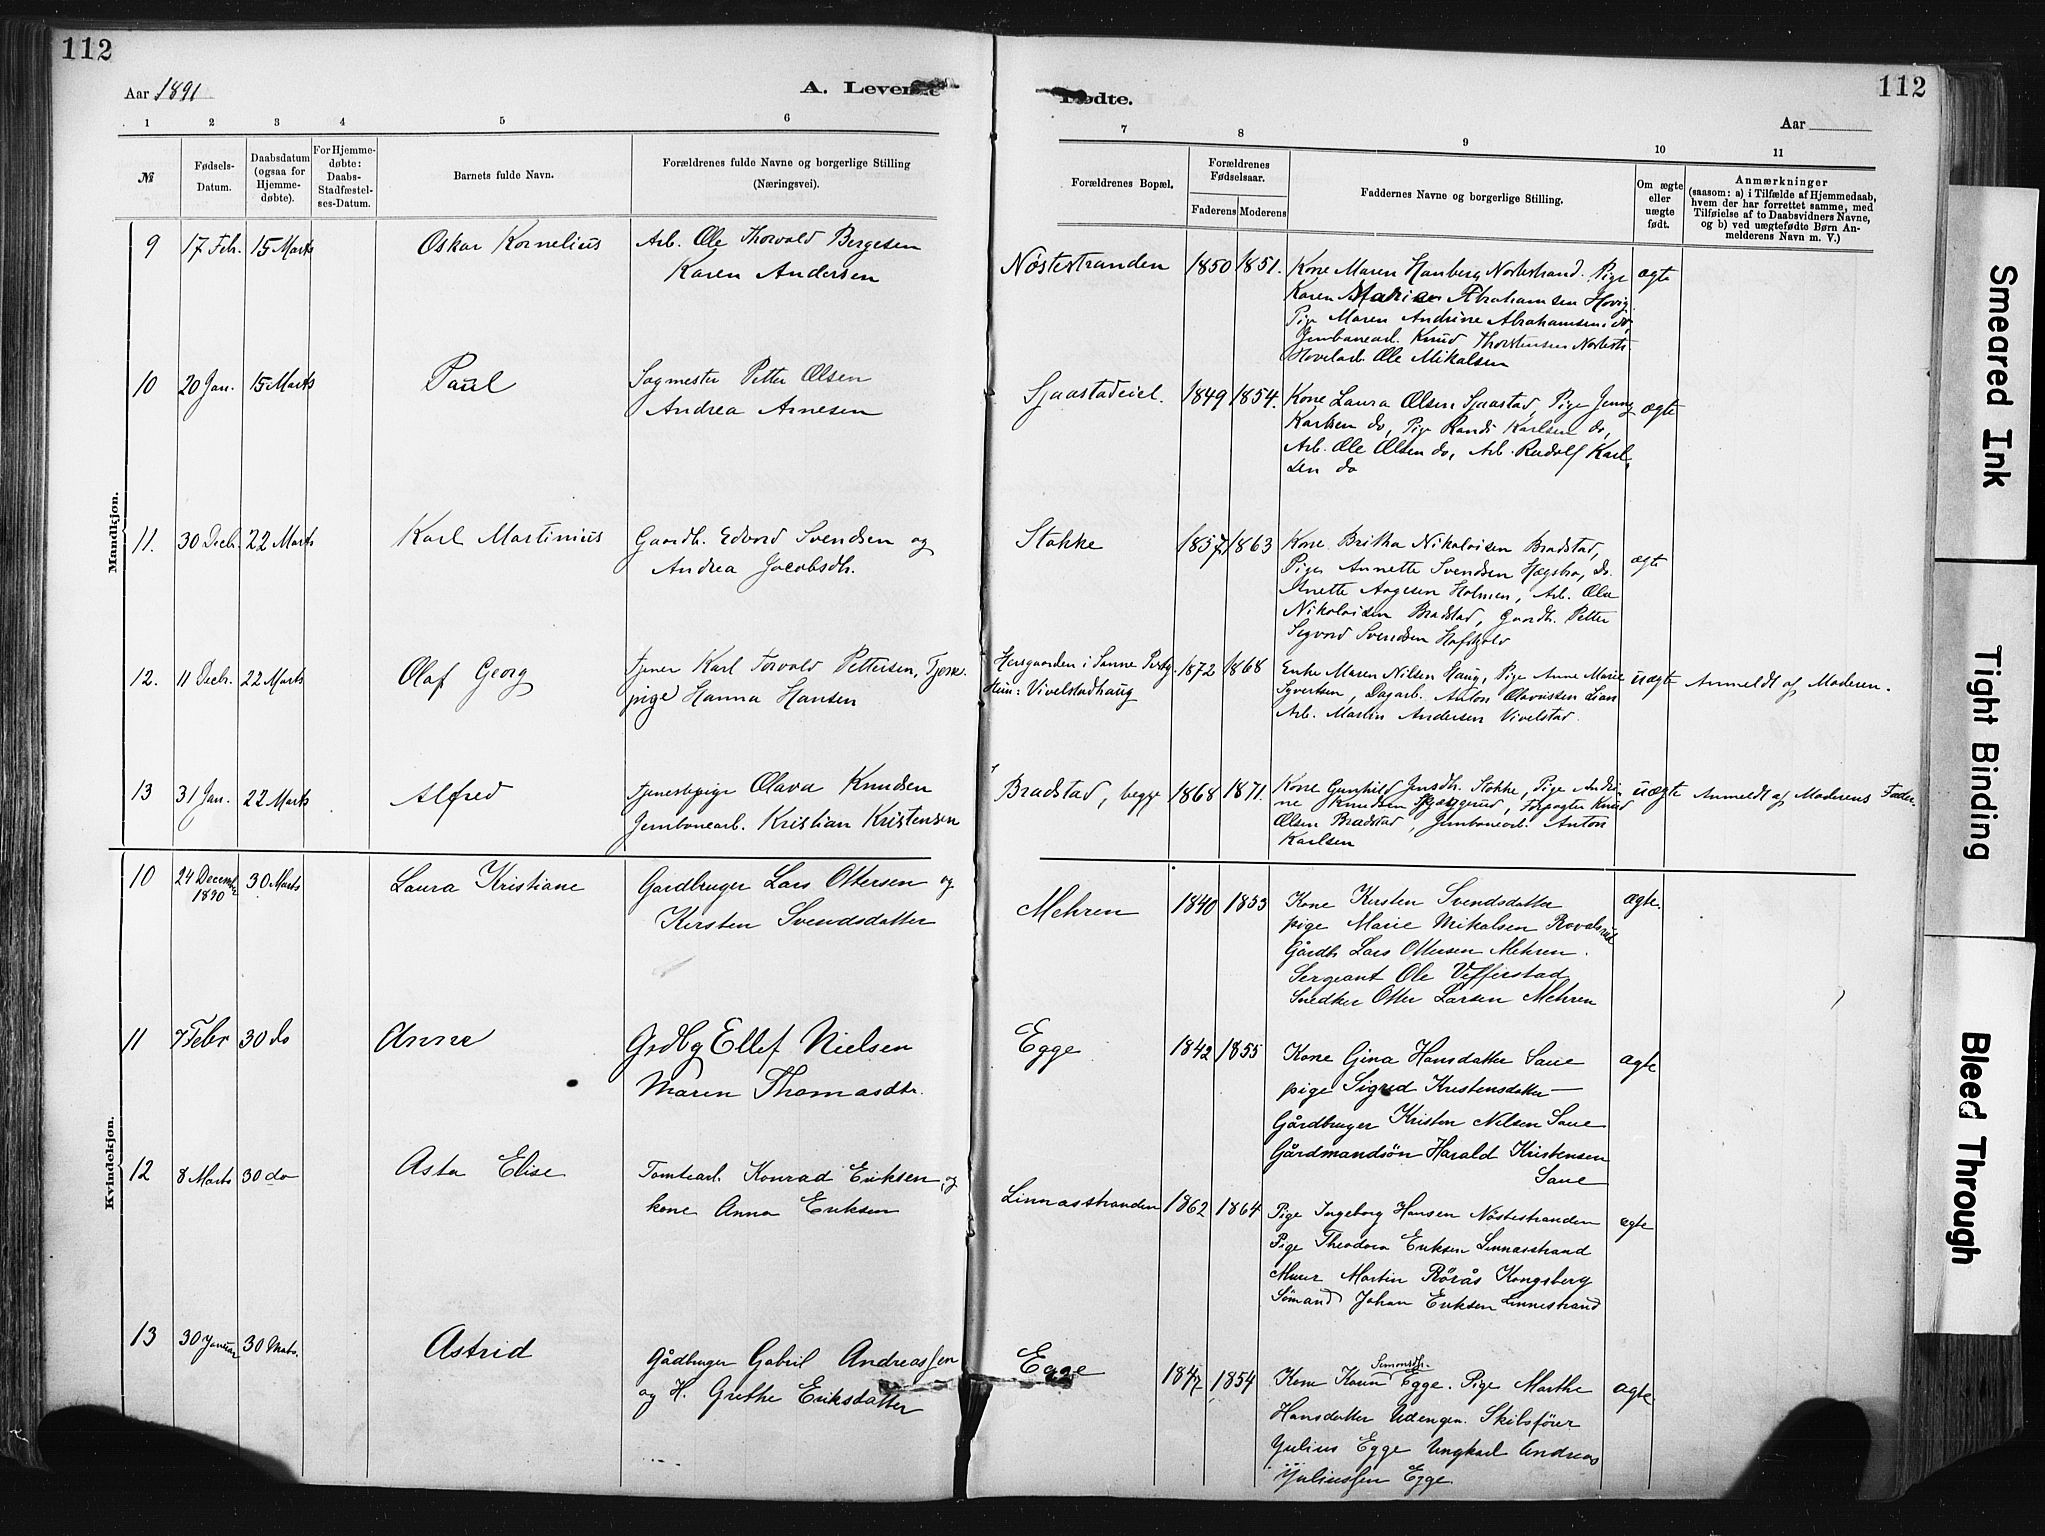 112
112
Aar 1891
A. Levende
Fødte.
Aar
1 2 3 4 5 6 7 8 9 10 11
№
Fødsels-
Datum.
Daabsdatum
(ogsaa for
Hjemme-
døbte).
For Hjemme-
døbte:
Daabs-
Stadfæstel-
ses-Datum.
Barnets fulde Navn.
Forældrenes fulde Navne og borgerlige Stilling
(Næringsvei).
Forældrenes Bopæl.
Forældrenes
Fødselsaar.
Faderens Moderens
Faddernes Navne og borgerlige Stilling.
Om ægte
eller
uægte
født.
Anmærkninger
(saasom: a) i Tilfælde af Hjemmedaab,
hvem der har forrettet samme, med
Tilføielse af to Daabsvidners Navne,
og b) ved uægtefødte Børn An-
melderens Navn m. V.)
Mandkjøn.
9 17 Febr. 15 Marts Oskar Kornelius
Arb. Ole Thorvald Bergesen
Karen Andersen
Nøstestranden 1850 1851.
Kone Maren Hanberg Nøstestrand. Pige
Karen Marie Abrahamsen Hovig
Pige Maren Andrine Abrahamsen do
Jernbanearb. Knud Thorstensen Nøstestr.
Hovelarb. Ole Mikalsen
ægte
10 20 Jan. 15 Marts Paul
Sagmester Petter Olsen
Andrea Arnesen
Sjaastadeiel. 1849 1854.
Kone Laura Olsen Sjaastad, Pige Jenny
Karlsen do, Pige Randi Karlsen do,
Arb. Ole Olsen do, Arb. Rudolf Karl-
sen do
ægte
11. 30 Decb. 22 Marts Karl Martinius
Gaardb. Edvard Svendsen og
Andrea Jacobsdh.
Stokke 1857 1863
Kone Britha Nikolaisen Bradstad,
Pige Annette Svendsen Hægsbro, do.
Anette Aagesen Holmen, Arb. Ole
Nikolaisen Bradstad, Gaardb. Petter
Segvard Svendsen Hafskold
ægte
12. 11 Decb. 22 Marts Olaf Georg
Tjener Karl Torvald Pettersen, Tjene-
pige Hanna Hansen
i Sanne
Hun: Vivelstadhaug
1872 1868
Enke Maren Nilsen Haug, Pige Anne Marie
Syvertsen, Dagarb. Anton Olavussen Lian
Arb. Martin Andersen Vivelstad.
uægte Anmeldt af Moderen.
13 31 Jan. 22 Marts Alfred
Tjenestepige Olava Knudsen
Jernbanearb. Kristian Kristensen
Bradstad, begge 1868 1871.
Kone Gunhild Jensdh. Stokke, Pige Andri-
ne Knudsen, Forpagter Knud
Olsen Bradstad, Jernbanearb. Anton
Karlsen
uægte Anmeldt af Moderens Fader
Kvindekjøn.
10 24 December
1890
30 Marts Laura Kristiane
Gardbruger Lars Ottersen og
Kirsten Svendsdatter
Mehren 1840 1853
Kone Kirsten Svendsdatter
pige Marie Mikalsen
Gårdb Lars Ottersen Mehren.
Sergeant Ole Vefferstad
Snedker Otter Larsen Mehren
ægte.
11 7 Febr 30 do Anne
Grdbg Ellef Nielsen
Maren Thomasdtr.
Egge 1842 1855
Kone Gina Hansdatter Saue
pige Sigrid Kristensdatter —
Gårdbruger Kristen Nilsen Saue
Gårdmandsön Harald Kristensen
Saue
ægte
12 8 Marts 30 do Asta Elise
Tomtearb. Konrad Eriksen, og
kone Anna Eriksen
Linnasstranden 1862 1864
Pige Ingeborg Hansen Nöstestranden
Pige Theodora Eriksen Linnasstrand
Murer Martin Rörås Kongsberg
Sömand Johan Eriksen Linnestrand
ægte
13 30 Januar 30 Mats. Astrid
Gådbruger Gabril Andreassen
og H. Grethe Eriksdatter
Egge 1847 1854
Simonsdtr.
Kone Karen Egge. Pige Marthe
Hansdatter Udengen. Skibsförer
Julius Egge Ungkarl Andreas
Juliussen Egge.
ægte
Smeared Ink
Tight Binding
Bleed Through